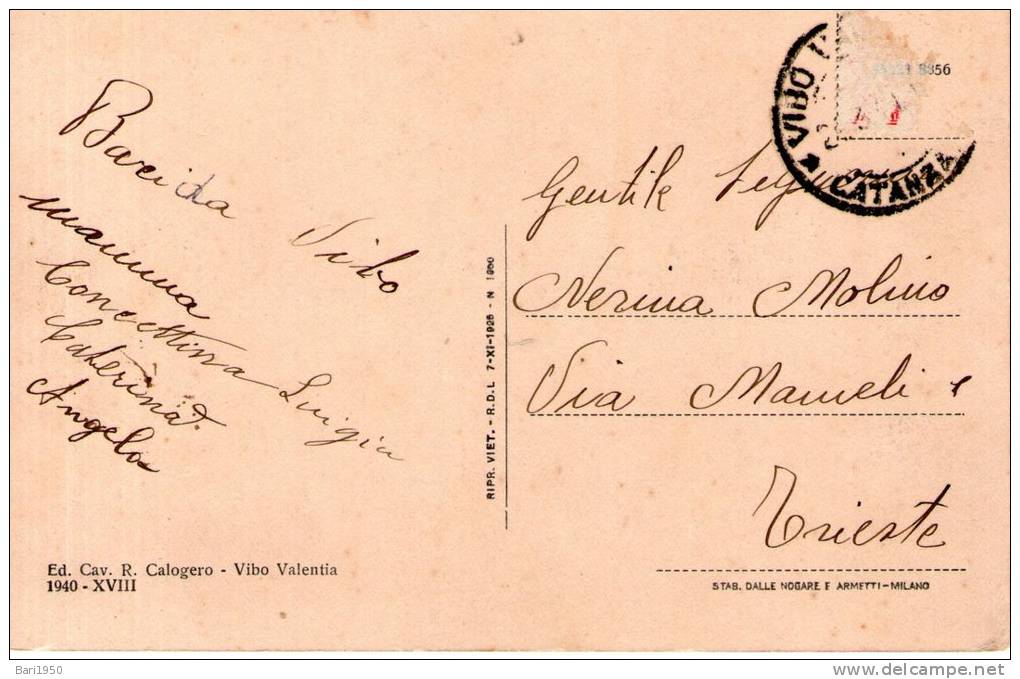 Baci da
Vibo
mamma
Concettina Luigia
Caterina
Angela
Ed. Cav. R. Calogero - Vibo Valentia
1940 - XVIII
RIPR. VIET. - R.D.L 7-XI-1925 - N 1950
VIBO
CATANZA
Gentile
Nerina Molino
Via Mameli
Trieste
STAB. DALLE NOGARE E ARMETTI-MILANO
Bari1950
www.delcampe.net